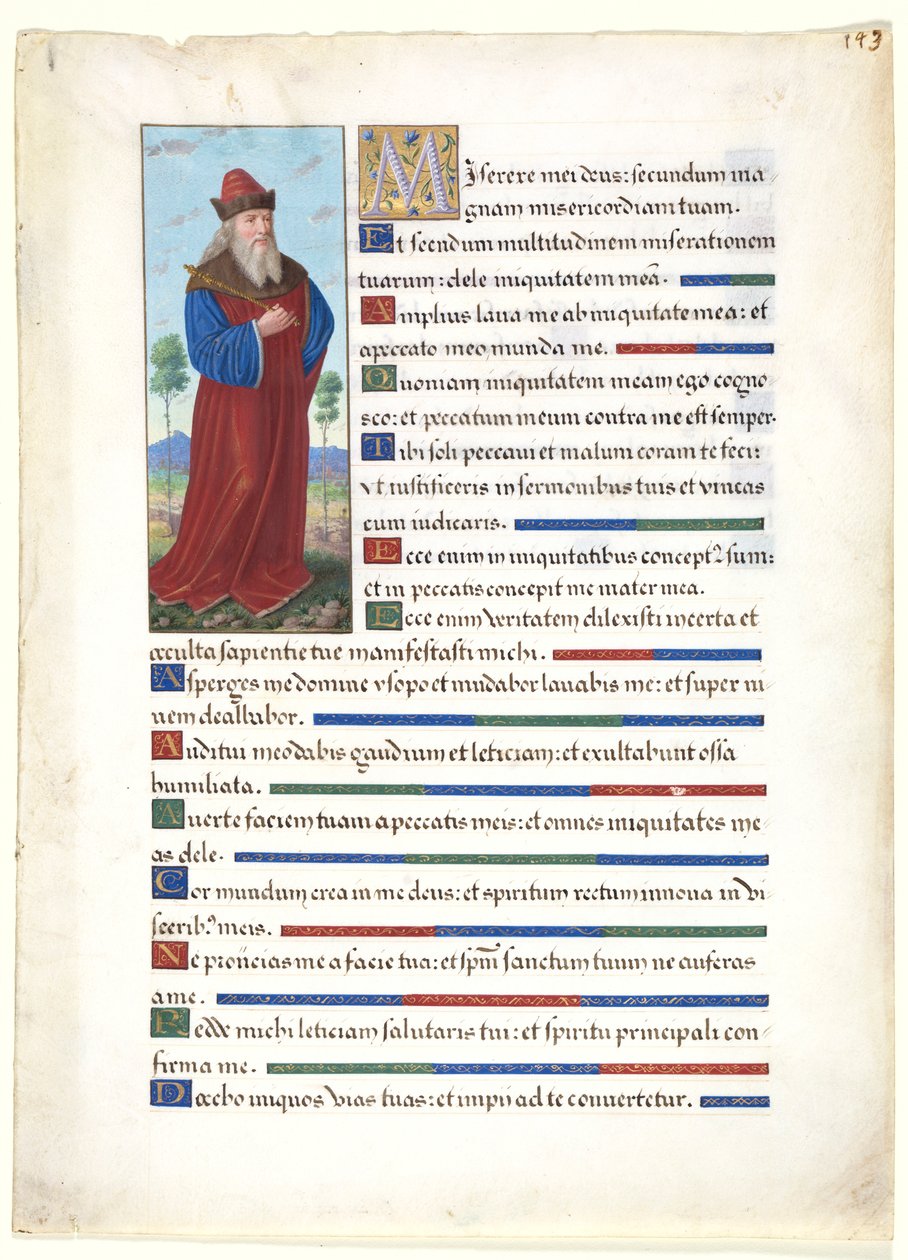 143
Miserere mei deus: secundum ma
gnam misericordiam tuam.
Et secundum multitudinem miserationem
tuarum: dele iniquitatem meā.
Amplius laua me ab iniquitate mea: et
a peccato meo munda me.
Quoniam iniquitatem meam ego cogno
sco: et peccatum meum contra me est semper.
Tibi soli peccaui et malum coram te feci:
vt iustificeris in sermonibus tuis et vincas
cum iudicaris.
Ecce enim in iniquitatibus concept9 sum:
et in peccatis concepit me mater mea.
Ecce enim veritatem dilexisti incerta et
occulta sapientie tue manifestasti michi.
Asperges me domine ysopo et mūdabor lauabis me: et super ni-
uem dealbabor.
Auditui meo dabis gaudium et leticiam: et exultabunt ossa
humiliata.
Auerte faciem tuam a peccatis meis: et omnes iniquitates me-
as dele.
Cor mundum crea in me deus: et spiritum rectum innoua in vi-
scerib9 meis.
Ne proiicias me a facie tua: et spm̄ sanctum tuum ne auferas
a me.
Redde michi leticiam salutaris tui: et spiritu principali con-
firma me.
Docebo iniquos vias tuas: et impii ad te conuertetur.